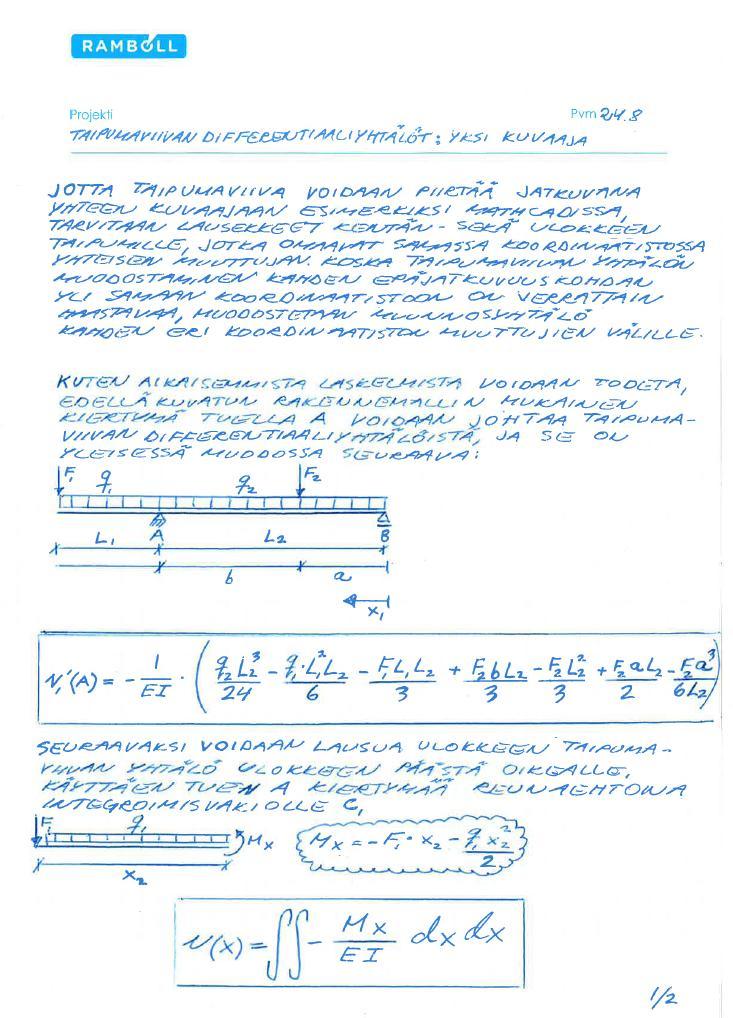 RAMBOLL
Projekti
Pvm 24.8
TAIPUMAVIIVAN DIFFERENTIAALIYHTÄLÖT: YKSI KUVAAJA
JOTTA TAIPUMAVIIVA VOIDAAN PIIRTÄÄ JATKUVANA
YHTEEN KUVAAJAAN ESIMERKIKSI MATHCADISSA,
TARVITAAN LAUSEKKEET KENTÄN- SEKÄ ULOKKEEN
TAIPUMILLE, JOTKA OMAAVAT SAMASSA KOORDINAATISTOSSA
YHTEISEN MUUTTUJAN. KOSKA TAIPUMAVIIVAN YHTÄLÖN
MUODOSTAMINEN KAHDEN EPÄJATKUVUUSKOHDAN
YLI SAMAAN KOORDINAATISTOON ON VERRATTAIN
HAASTAVAA, MUODOSTETAAN MUUNNOSYHTÄLÖ
KAHDEN ERI KOORDINAATISTON MUUTTUJIEN VÄLILLE.
KUTEN AIKAISEMMISTA LASKELMISTA VOIDAAN TODETA,
EDELLÄ KUVATUN RAKENNEMALLIN MUKAINEN
KIERTYMÄ TUELLA A VOIDAAN JOHTAA TAIPUMA-
VIIVAN DIFFERENTIAALIYHTÄLÖISTÄ, JA SE ON
YLEISESSÄ MUODOSSA SEURAAVA:
F₁ q₁ q₂ F₂
A B
L₁ L₂
b a
x₁
v₁'(A) = - 1/EI · (q₂L₂³/24 - q₁·L₁²L₂/6 - F₁L₁L₂/3 + F₂bL₂/3 - F₂L₂²/3 + F₂aL₂/2 - F₂a³/6L₂)
SEURAAVAKSI VOIDAAN LAUSUA ULOKKEEN TAIPUMA-
VIIVAN YHTÄLÖ ULOKKEEN PÄÄSTÄ OIKEALLE,
KÄYTTÄEN TUEN A KIERTYMÄÄ REUNAEHTONA
INTEGROIMISVAKIOLLE C₁
F₁ q₁ Mx
x₂
Mx = -F₁·x₂ - q₁x₂²/2
v(x) = ∫∫ - Mx/EI dx dx
1/2